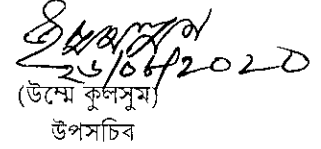 ২৬/০৮/২০২০
(উম্মে কুলসুম)
উপসচিব